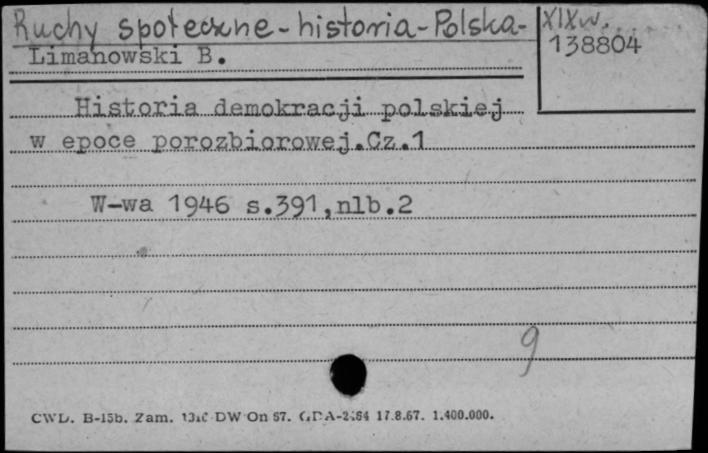 Ruchy społeczne - historia - Polska - XIX w.
138804
Limanowski B.
Historia demokracji polskiej
w epoce porozbiorowej.Cz.1
W-wa 1946 s.391,nlb.2
9
CWD. B-15b. Zam. DW On 67. GDA-2 17.8.67. 1.400.000.